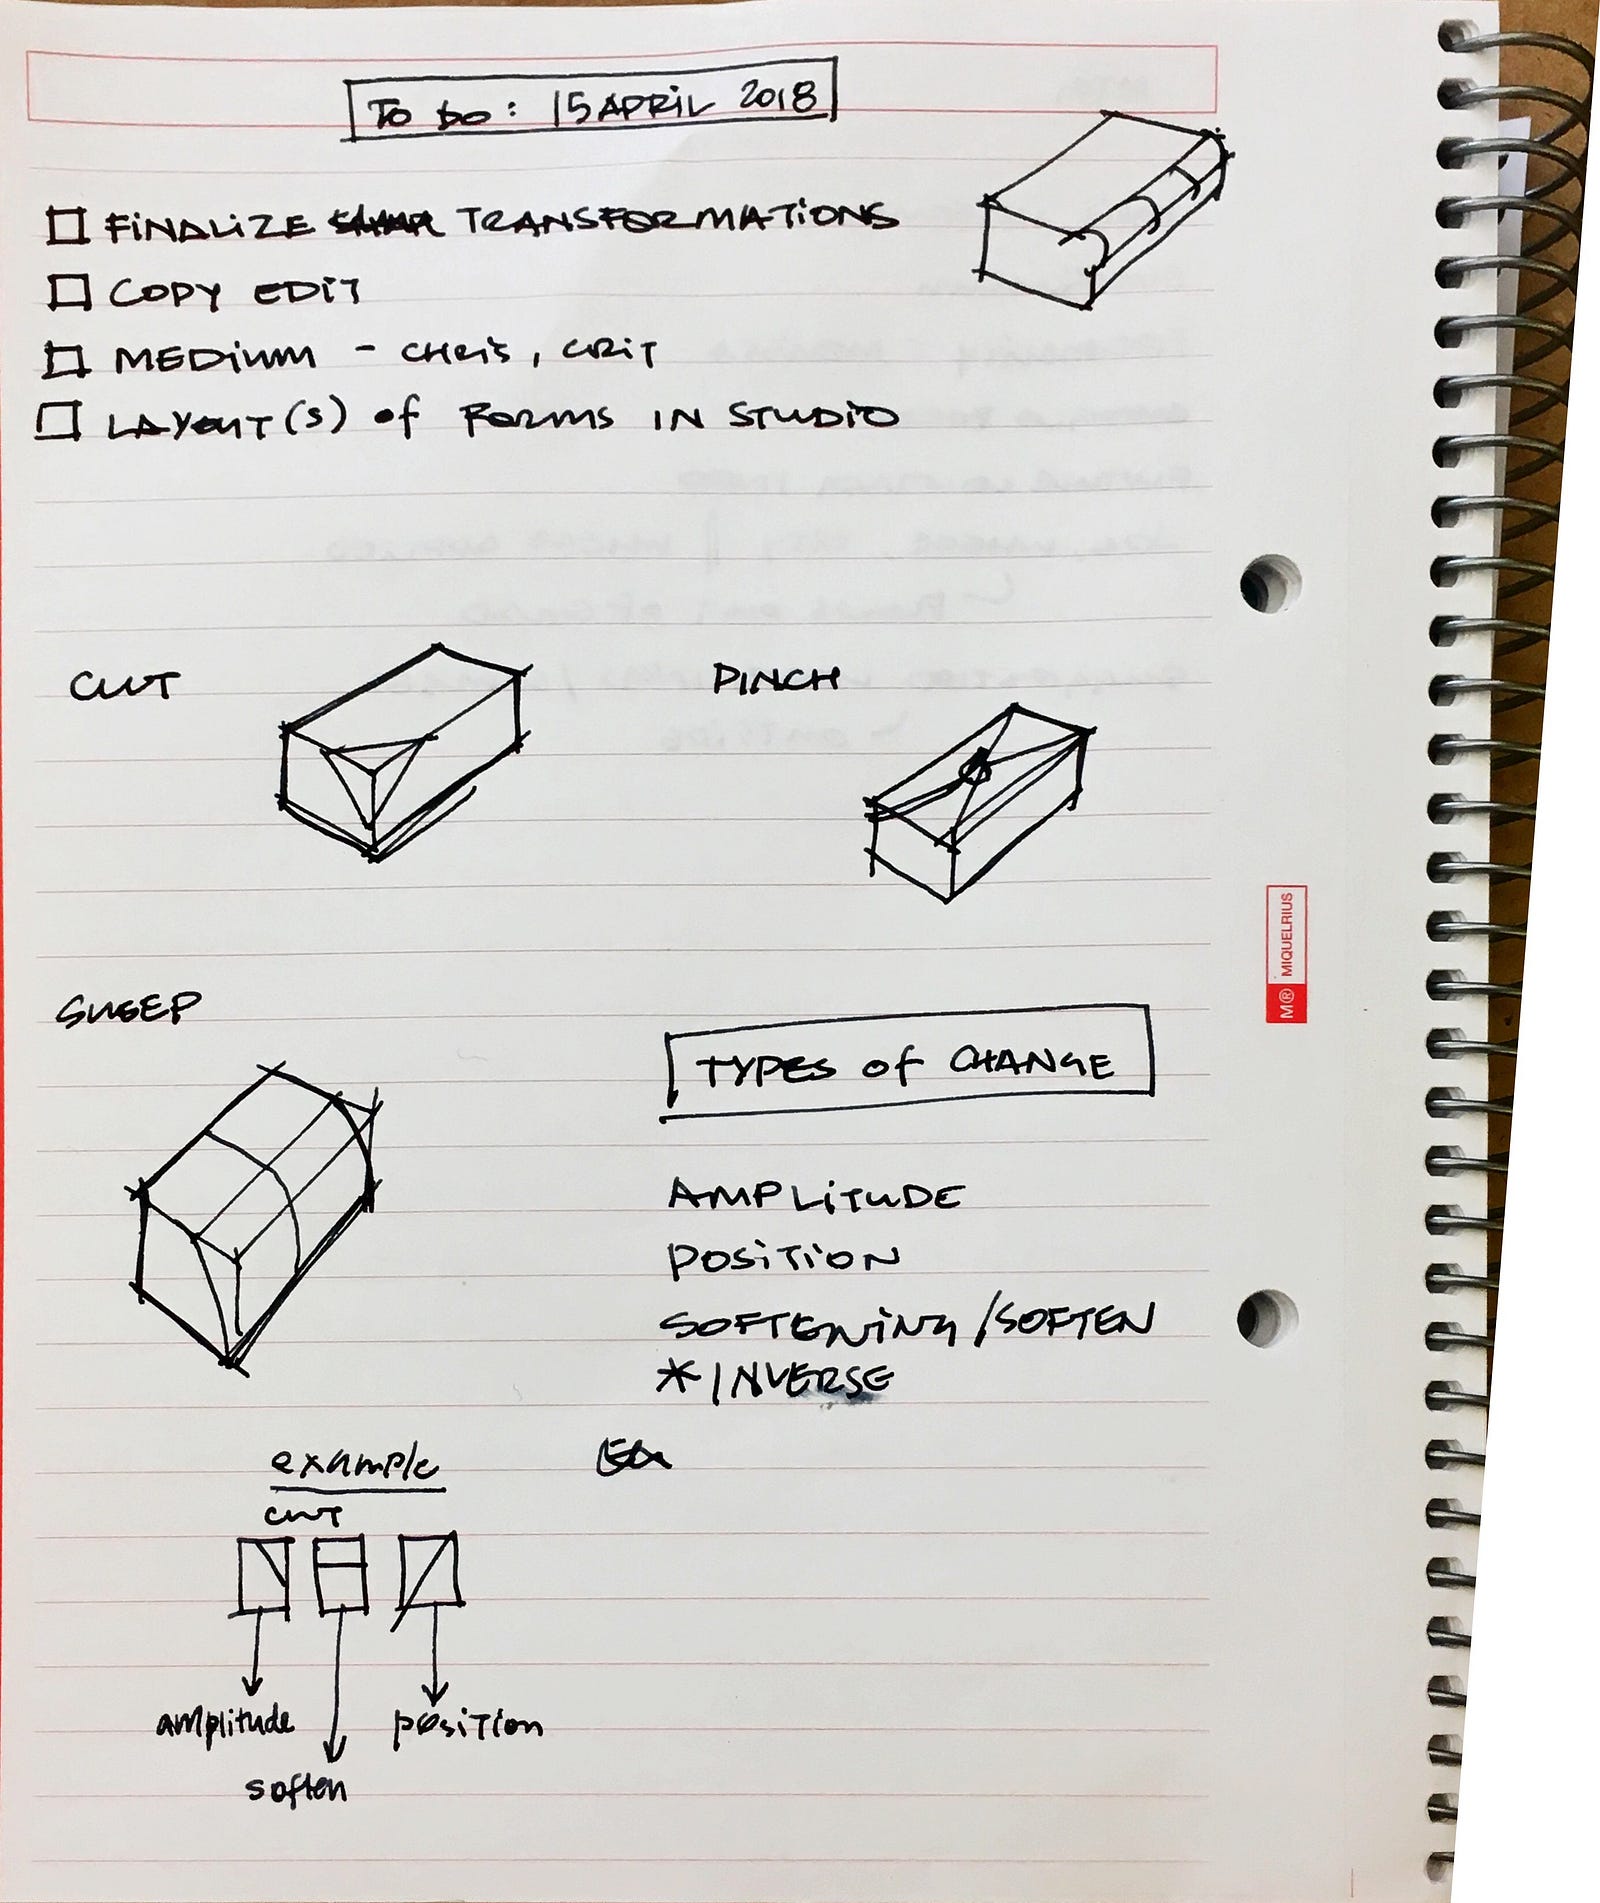 To Do: 15 APRIL 2018
FINALIZE TRANSFORMATIONS
COPY EDIT
MEDIUM - CHRIS, CRIT
LAYOUT(S) of FORMS IN STUDIO
CUT
PINCH
SWEEP
TYPES of CHANGE
AMPLITUDE
POSITION
SOFTENING/SOFTEN
*INVERSE
example
CUT
amplitude
position
soften
M® MIQUELRIUS